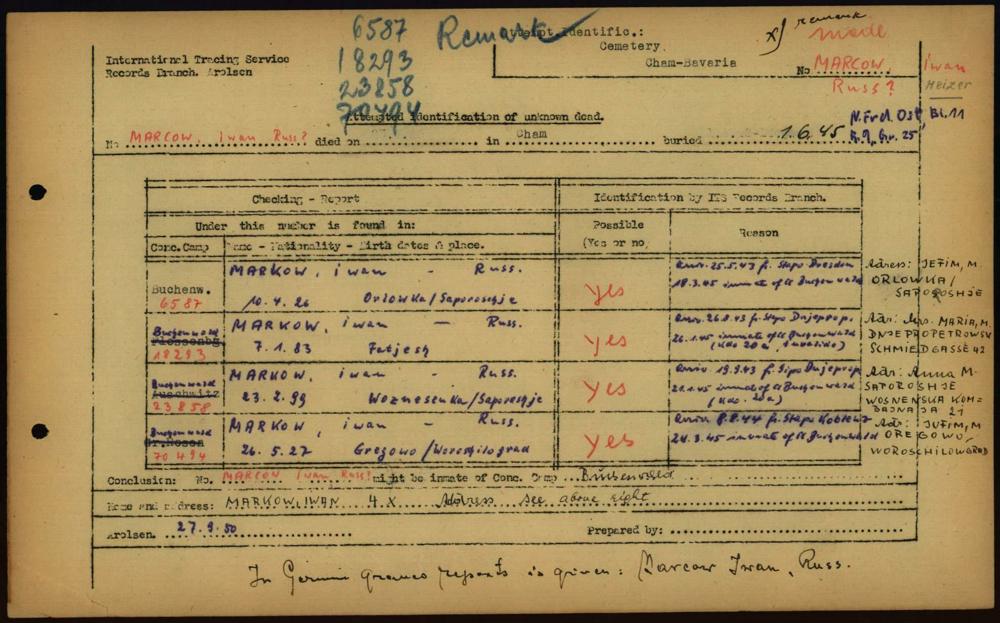 6587
18293
23858
70494
Remark
x) remark
made
Attempt. Identific.:
Cemetery.
Cham-Bavaria
No MARCOW, iwan
Russ? Heizer
International Tracing Service
Records Branch. Arolsen
Attempted identification of unknown dead.
N.Frd. Ost, Bl.11
R.9, Gr. 25
No MARCOW, iwan Russ? died on in Cham buried 1.6.45
Checking - Report
Identification by ITS Records Branch.
Under this number is found in:
Possible
(Yes or no)
Reason
Conc. Camp
Name - Nationality - Birth dates & place.
Buchenw.
6587
MARKOW, iwan - Russ.
10.4.26 Orlowka/Saporoschje
yes
25.5.43 fr. Stapo Dresden
18.3.45 inmate of Buchenwald
Adress: JEFIM, M.
ORLOWKA/
SAPOROSHJE
Buchenwald
Flossenbg.
18293
MARKOW, iwan - Russ.
7.1.83 Fatjesh
yes
26.8.43 fr. Stapo Dnjeprop.
26.1.45 inmate of Buchenwald
(Kdo 20a, invalide)
Adr: Mrs. MARIA, M.
DNJEPROPETROWSK
SCHMIEDGASSE 42
Buchenwald
Auschwitz
23858
MARKOW, iwan - Russ.
23.2.99 Woznesenka/Saporosjje
yes
19.9.43 fr. Sipo Dnjeprop
inmate of Buchenwald
(Kdo. 20a)
Adr: Anna M.
SAPOROSHJE
WOSNENSKA KOM=
21
Buchenwald
Gr.Rosen
70494
MARKOW, iwan - Russ.
26.5.27 Gregowo/Woroschilograd
yes
8.8.44 fr. Stapo Koblenz
24.3.45 inmate of Buchenwald
Adr: JUFIM, M
OREGOWO,
WOROSCHILOWGRAD
Conclusion: No. MARCOW iwan Russ? might be inmate of Conc. Camp Buchenwald
Name and adress: MARKOW, IWAN 4 X Address see above right
Arolsen. 27.9.50 Prepared by:
In Germ. graves reports is given: Marcow Iwan, Russ.